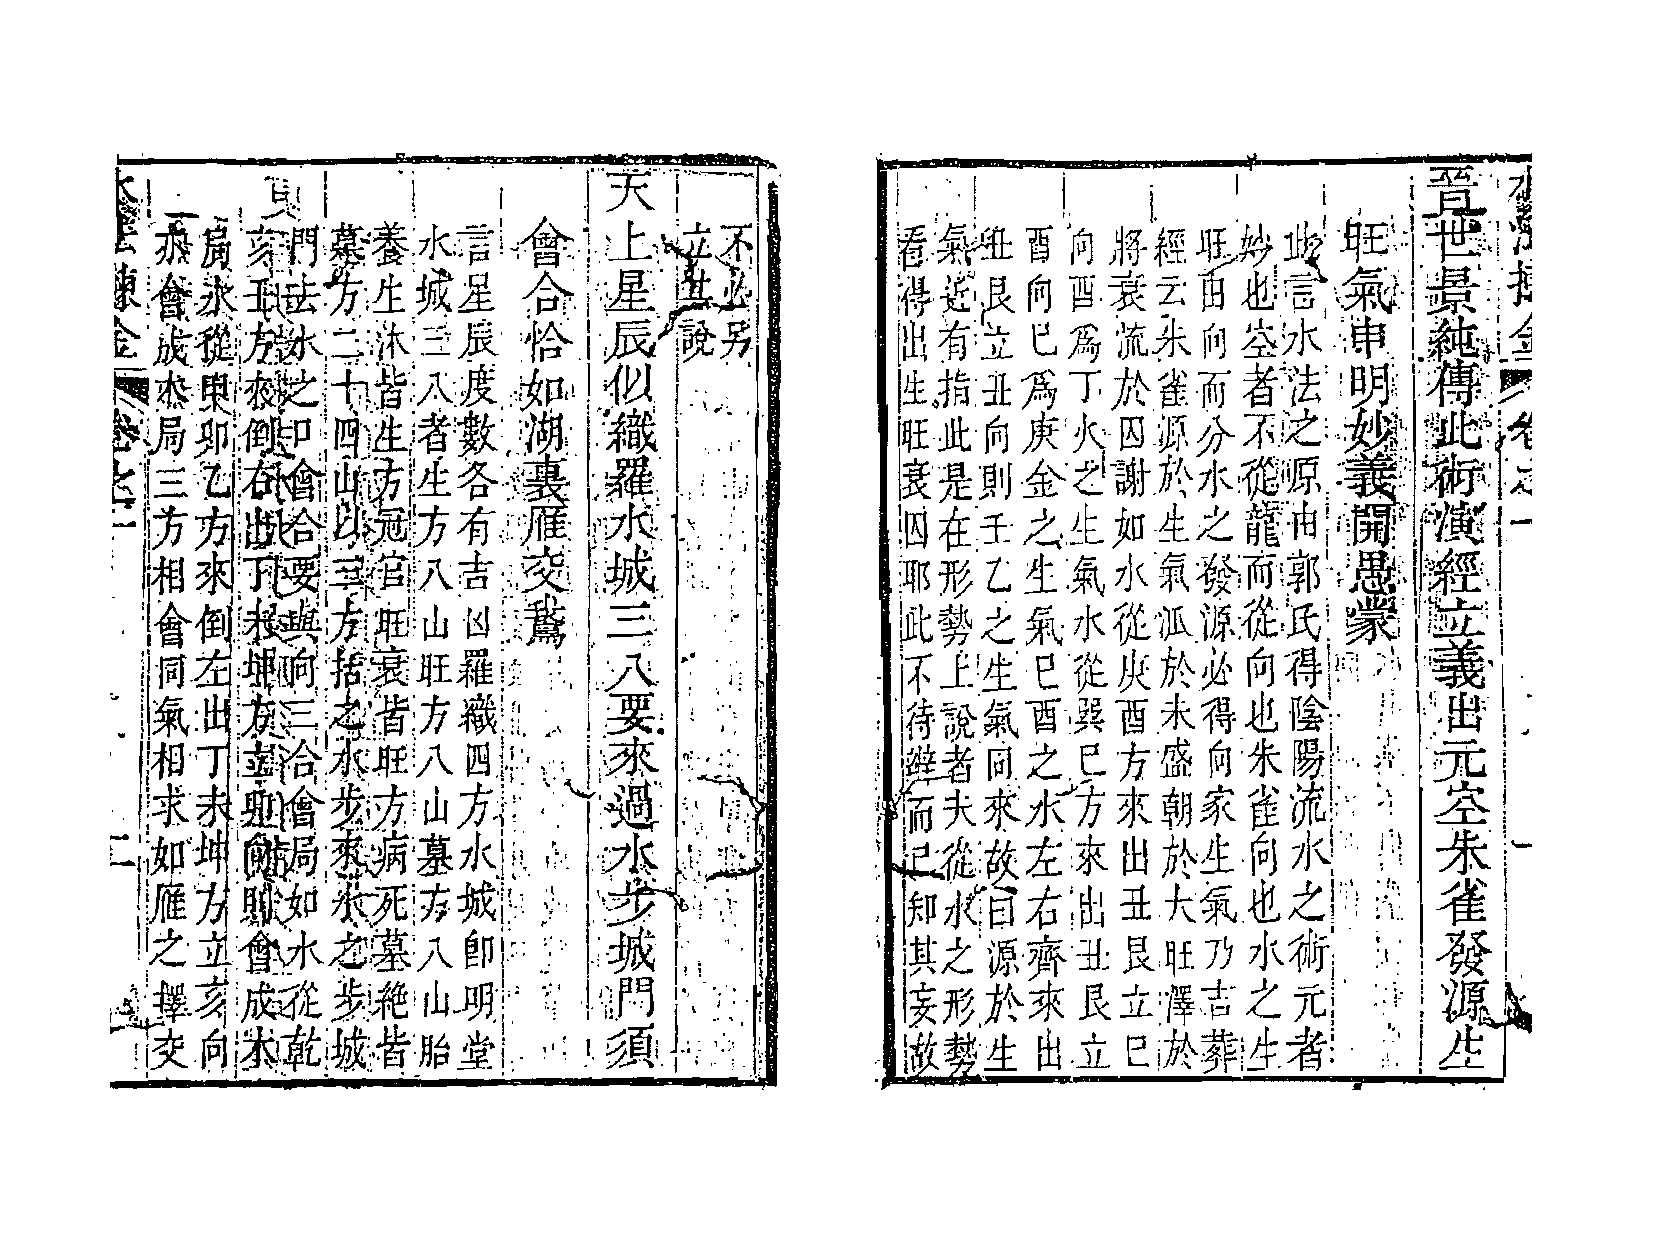 晉世景純傳此術演經立義出元空朱雀發源生
旺氣申明妙義開愚蒙
此言水法之原由郭氏得陰陽流水之術元者
妙也空者不從龍而從向也朱雀向也水之生
旺由向而分水之發源必得向家生氣乃吉葬
經云朱雀源於生氣派於未盛朝於大旺澤於
將衰流於囚謝如水從庚酉方來出丑艮立巳
向酉為丁火之生氣水從巽巳方來出丑艮立
酉向巳為庚金之生氣巳酉之水左右齊來出
丑艮立丑向則壬乙之生氣同來故曰源於生
氣近有指此是在形勢上說者夫從水之形勢
看得出生旺衰囚耶此不待辨而已知其妄故
不必另
立其說
天上星辰似織羅水城三八要來過水步城門須
會合恰如湖裏雁交鵞
言星辰度數各有吉凶羅織四方水城卽明堂
水城三八者生方八山旺方八山墓方八山胎
養生沐皆生方冠官旺衰皆旺方病死墓絶皆
墓方二十四山以三方括之水步來水之步城
門去水之口會合要與向三合會局如水從乾
亥壬方來倒右出丁未坤方立卯向則會成木
局水從甲卯乙方來倒左出丁未坤方立亥向
亦會成木局三方相會同氣相求如雁之擇交